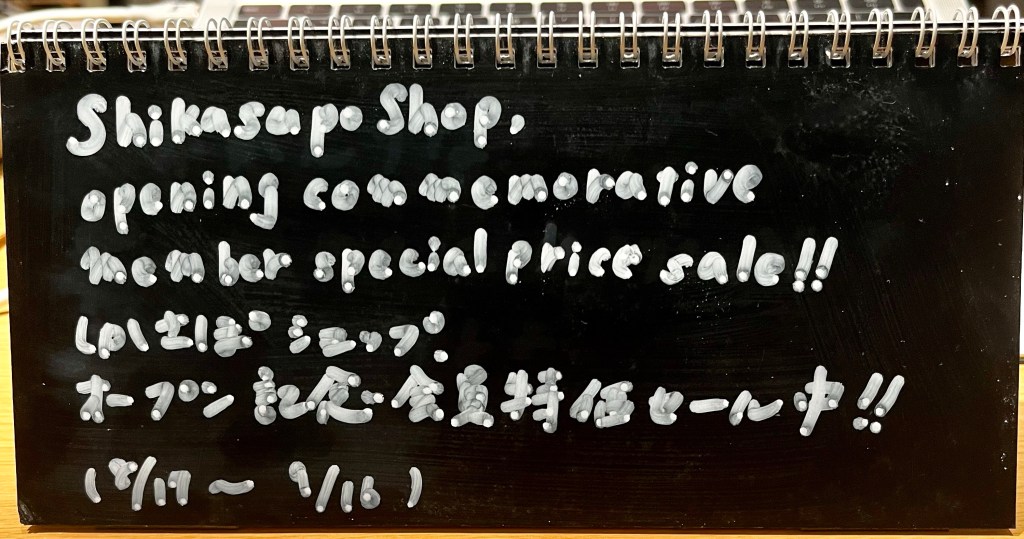 Shikasapo Shop,
opening commemorative
member special price sale!!
しかさぽ ショップ、
オープン 記念 会員特価セール中!!
(8/17 ~ 9/16)